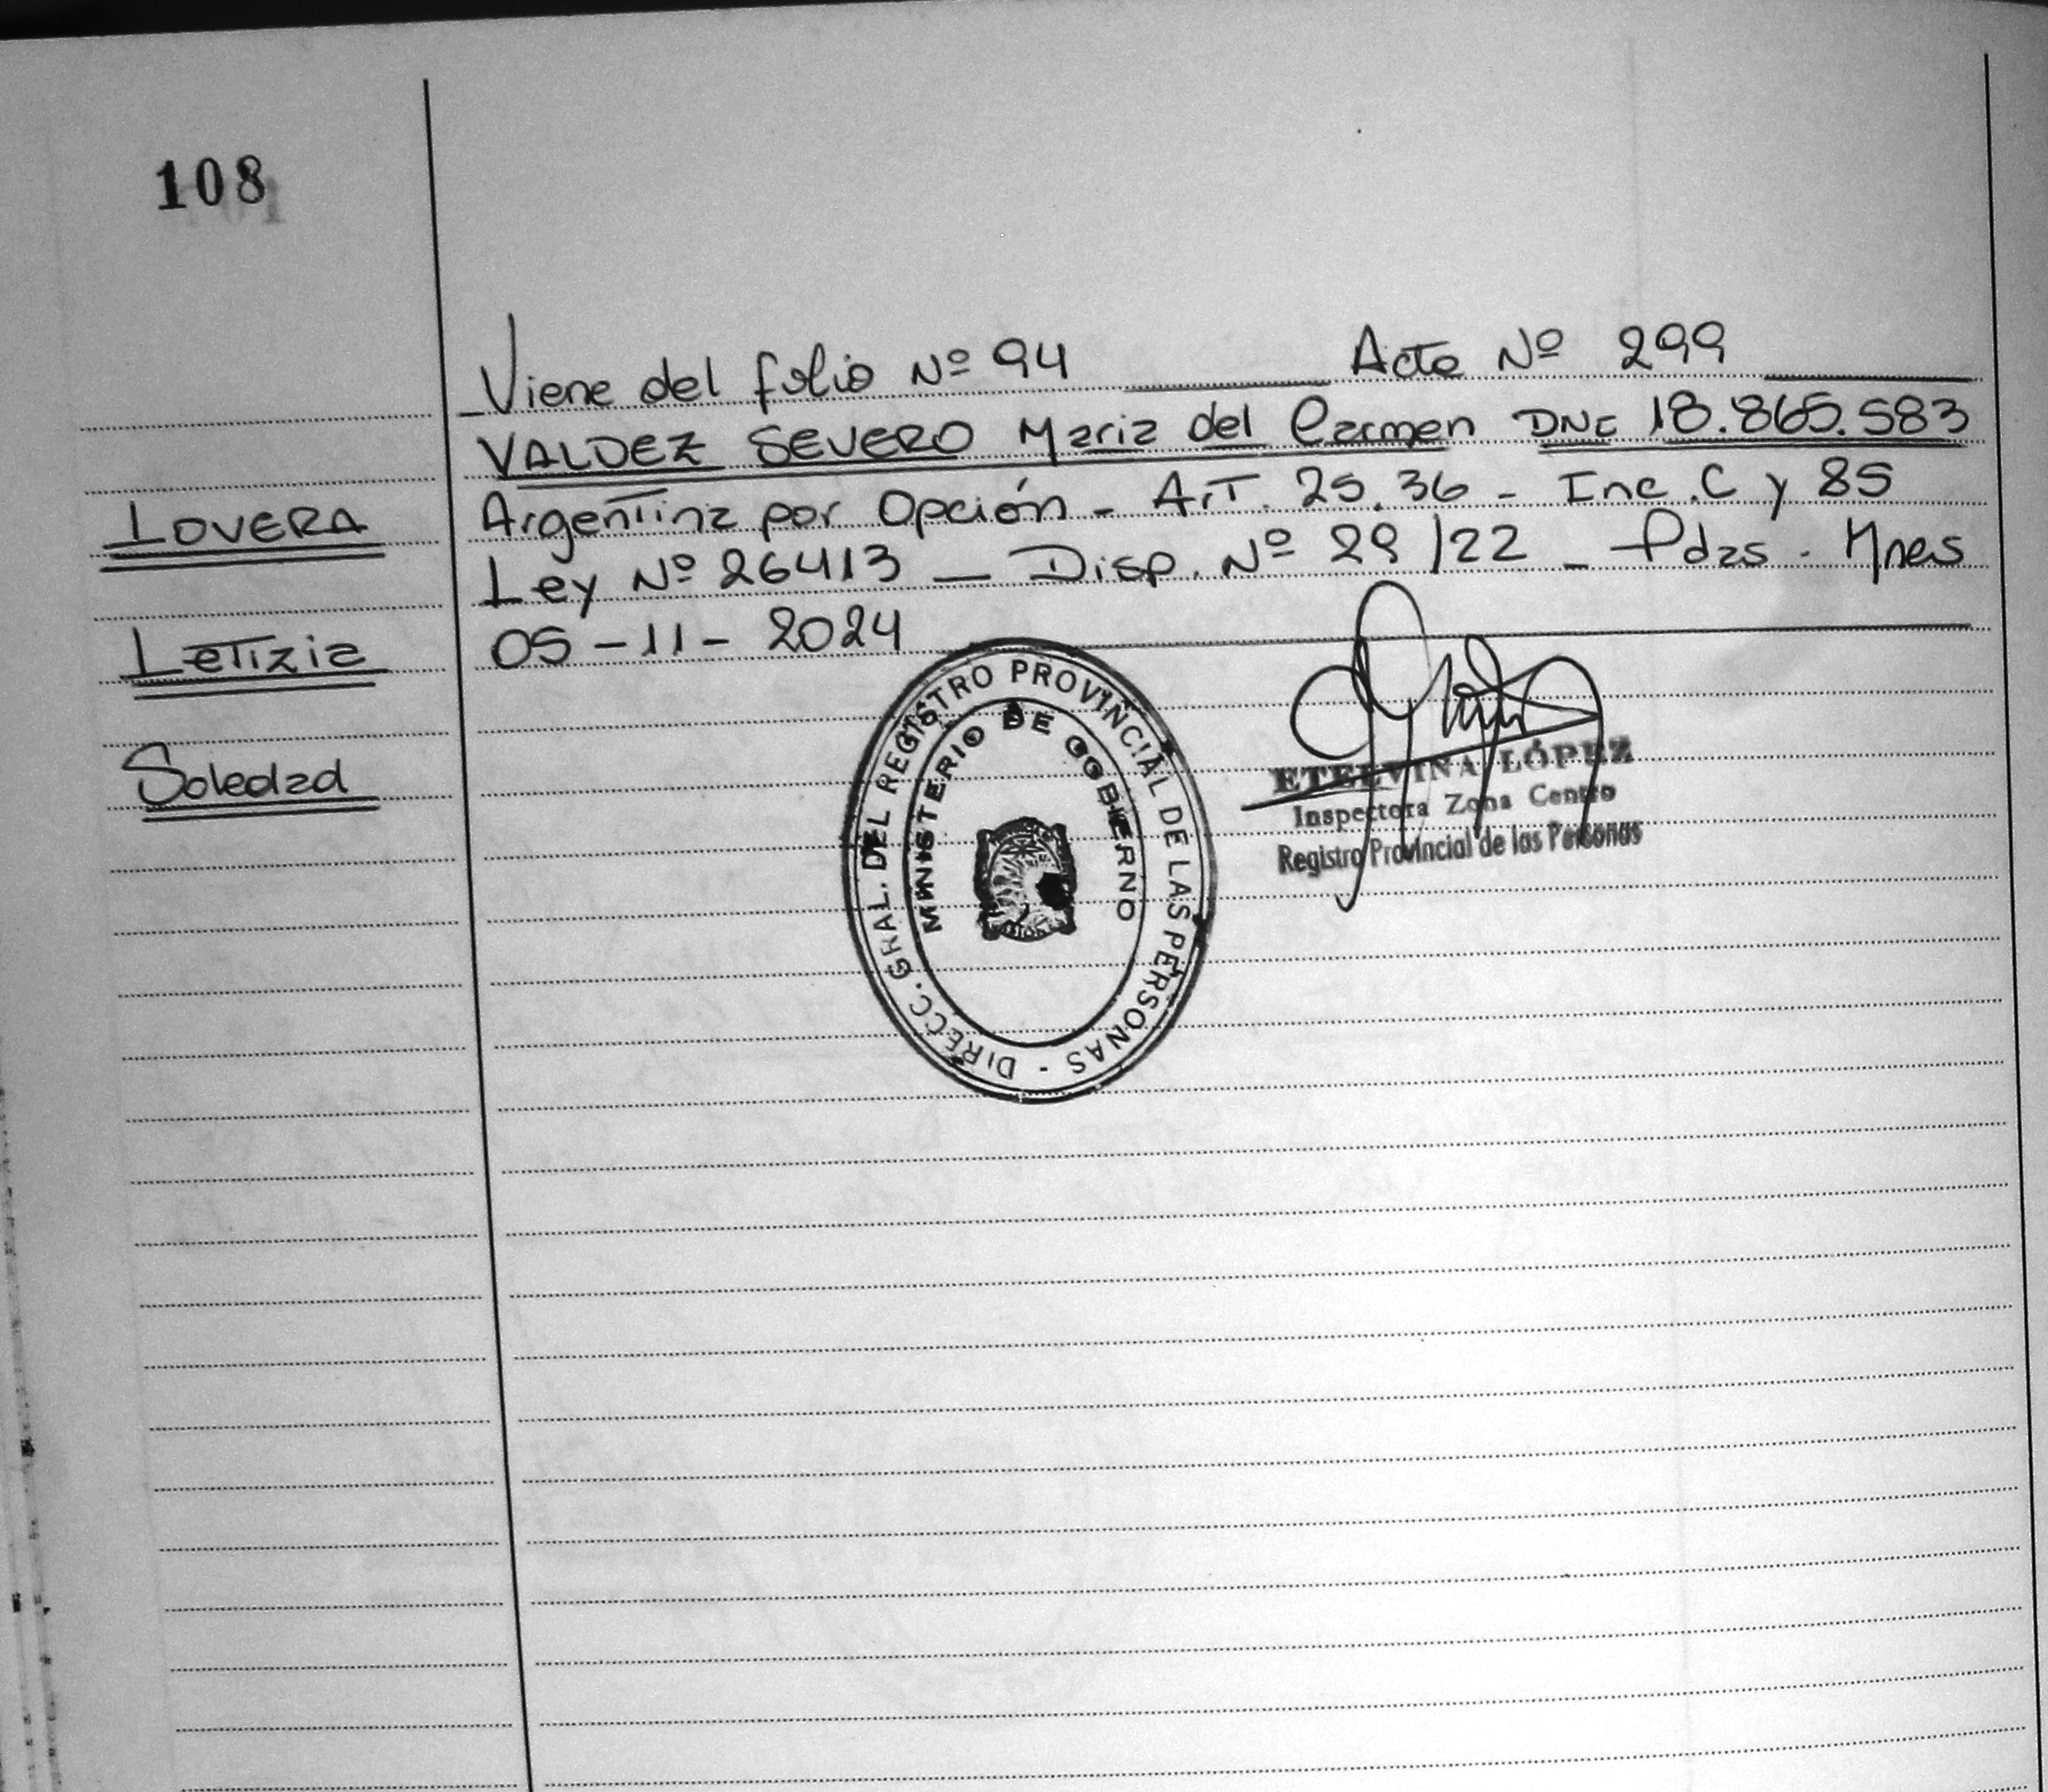 108
Viene del folio Nº 94 Acta Nº 299
VALDEZ SEVERO Maria del Carmen DNI 18.865.583
Argentina por Opción - Art. 25.36 - Inc. C y 85
LOVERA
Ley Nº 26413 - Disp. Nº 29/22 - Pdas. Mnes
05-11-2024
Letizia
Soledad
DIRECC. GRAL. DEL REGISTRO PROVINCIAL DE LAS PERSONAS -
MINISTERIO DE GOBIERNO
ETELVINA LÓPEZ
Inspectora Zona Centro
Registro Provincial de las Personas